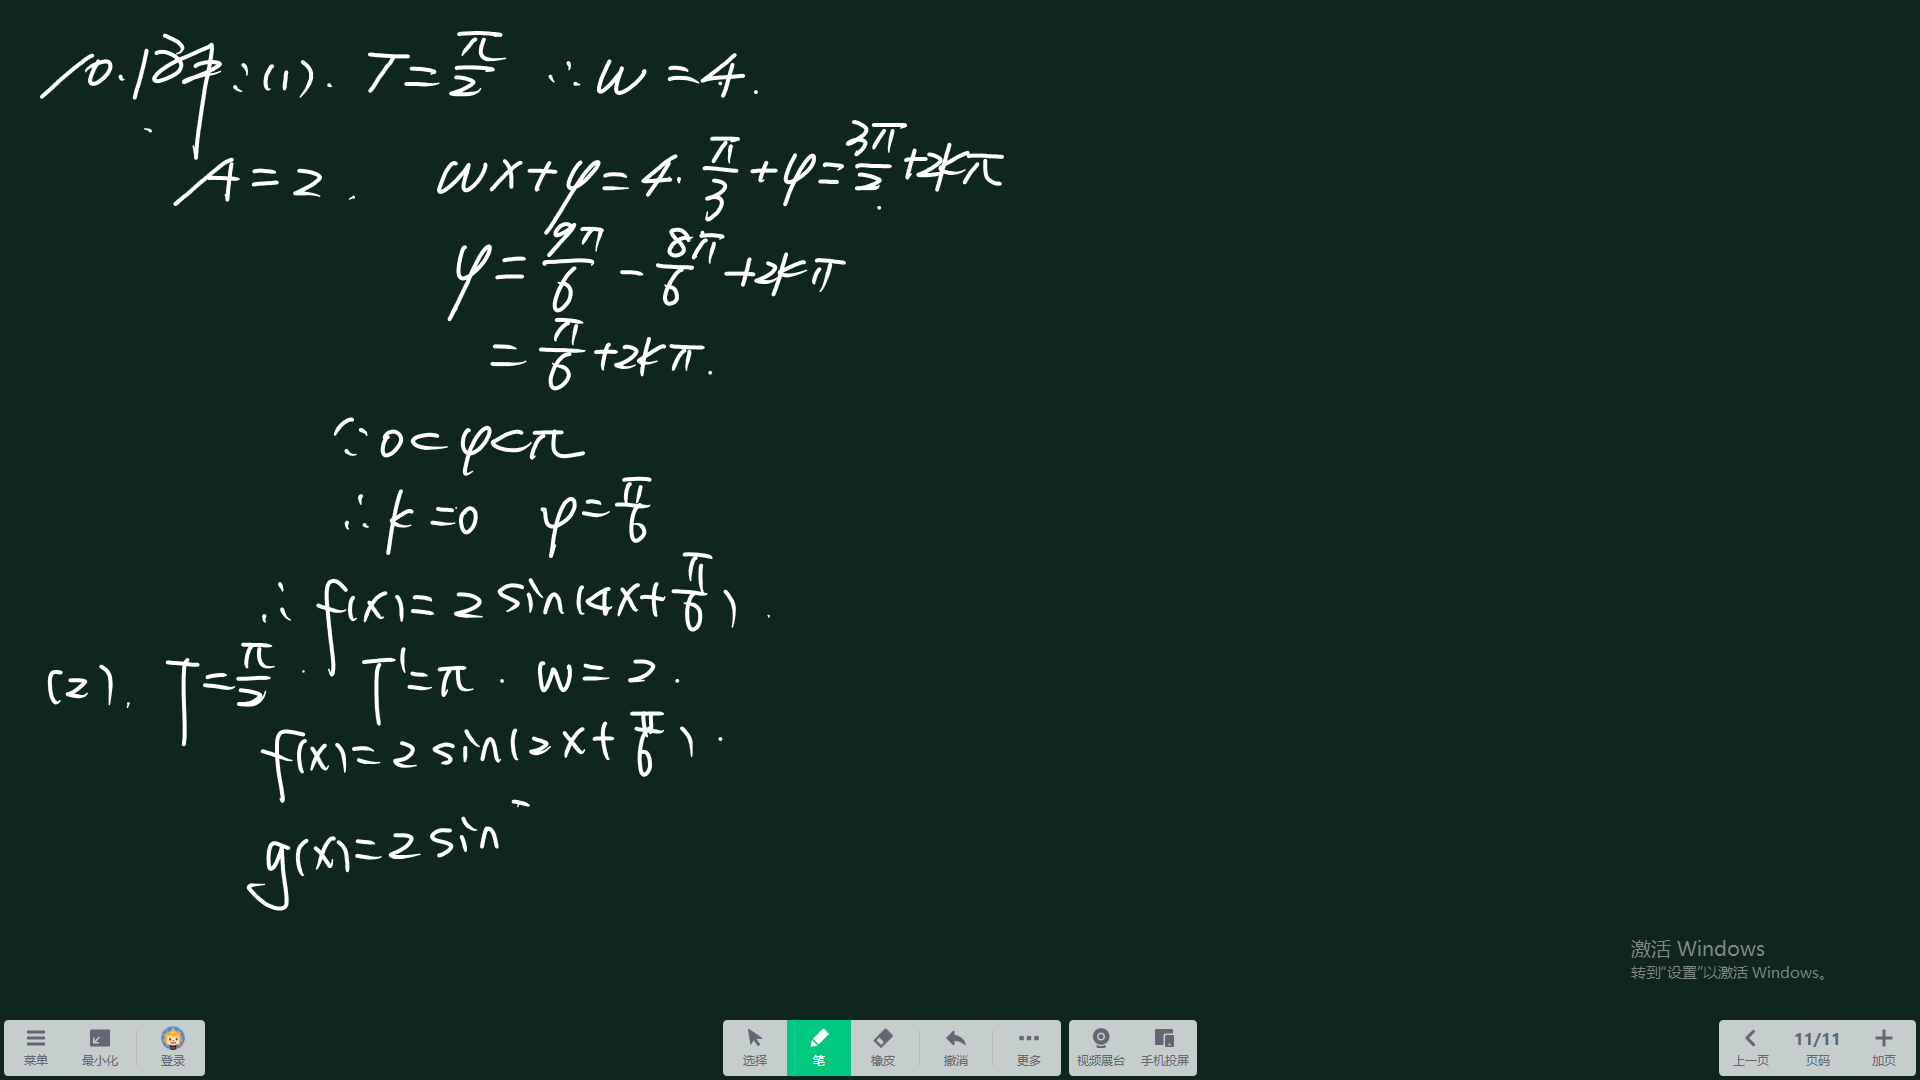 10.解:(1). T=π/2 ∴w=4.
A=2. wx+φ=4·π/3+φ=3π/2+2kπ
φ=9π/6-8π/6+2kπ
=π/6+2kπ.
∵0<φ<π
∴k=0 φ=π/6
∴f(x)=2sin(4x+π/6).
(2). T=π/2. T'=π. w=2.
f(x)=2sin(2x+π/6).
g(x)=2sin
激活 Windows
转到“设置”以激活 Windows。
菜单 最小化 登录 选择 笔 橡皮 撤消 更多 视频展台 手机投屏 上一页 11/11 页码 加页